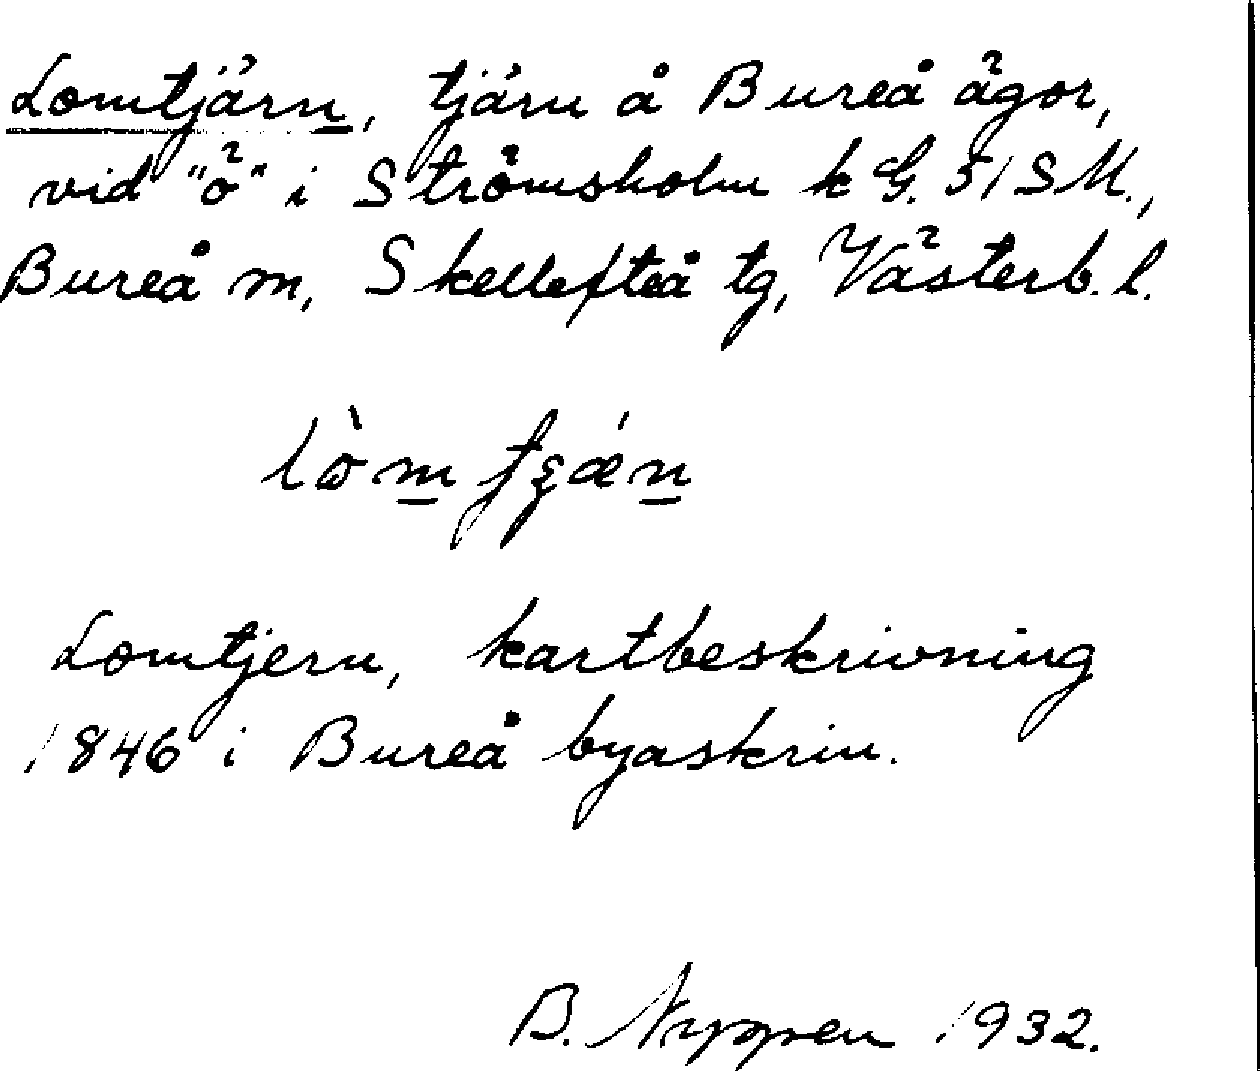 Lomtjärn, tjärn å Bureå ägor,
vid "ö" i Strömsholm k G. 51 SM.,
Bureå m, Skellefteå tg, Västerb. l.
Lomtjern, kartbeskrivning
1846 i Bureå byaskrin.
B. 1932.